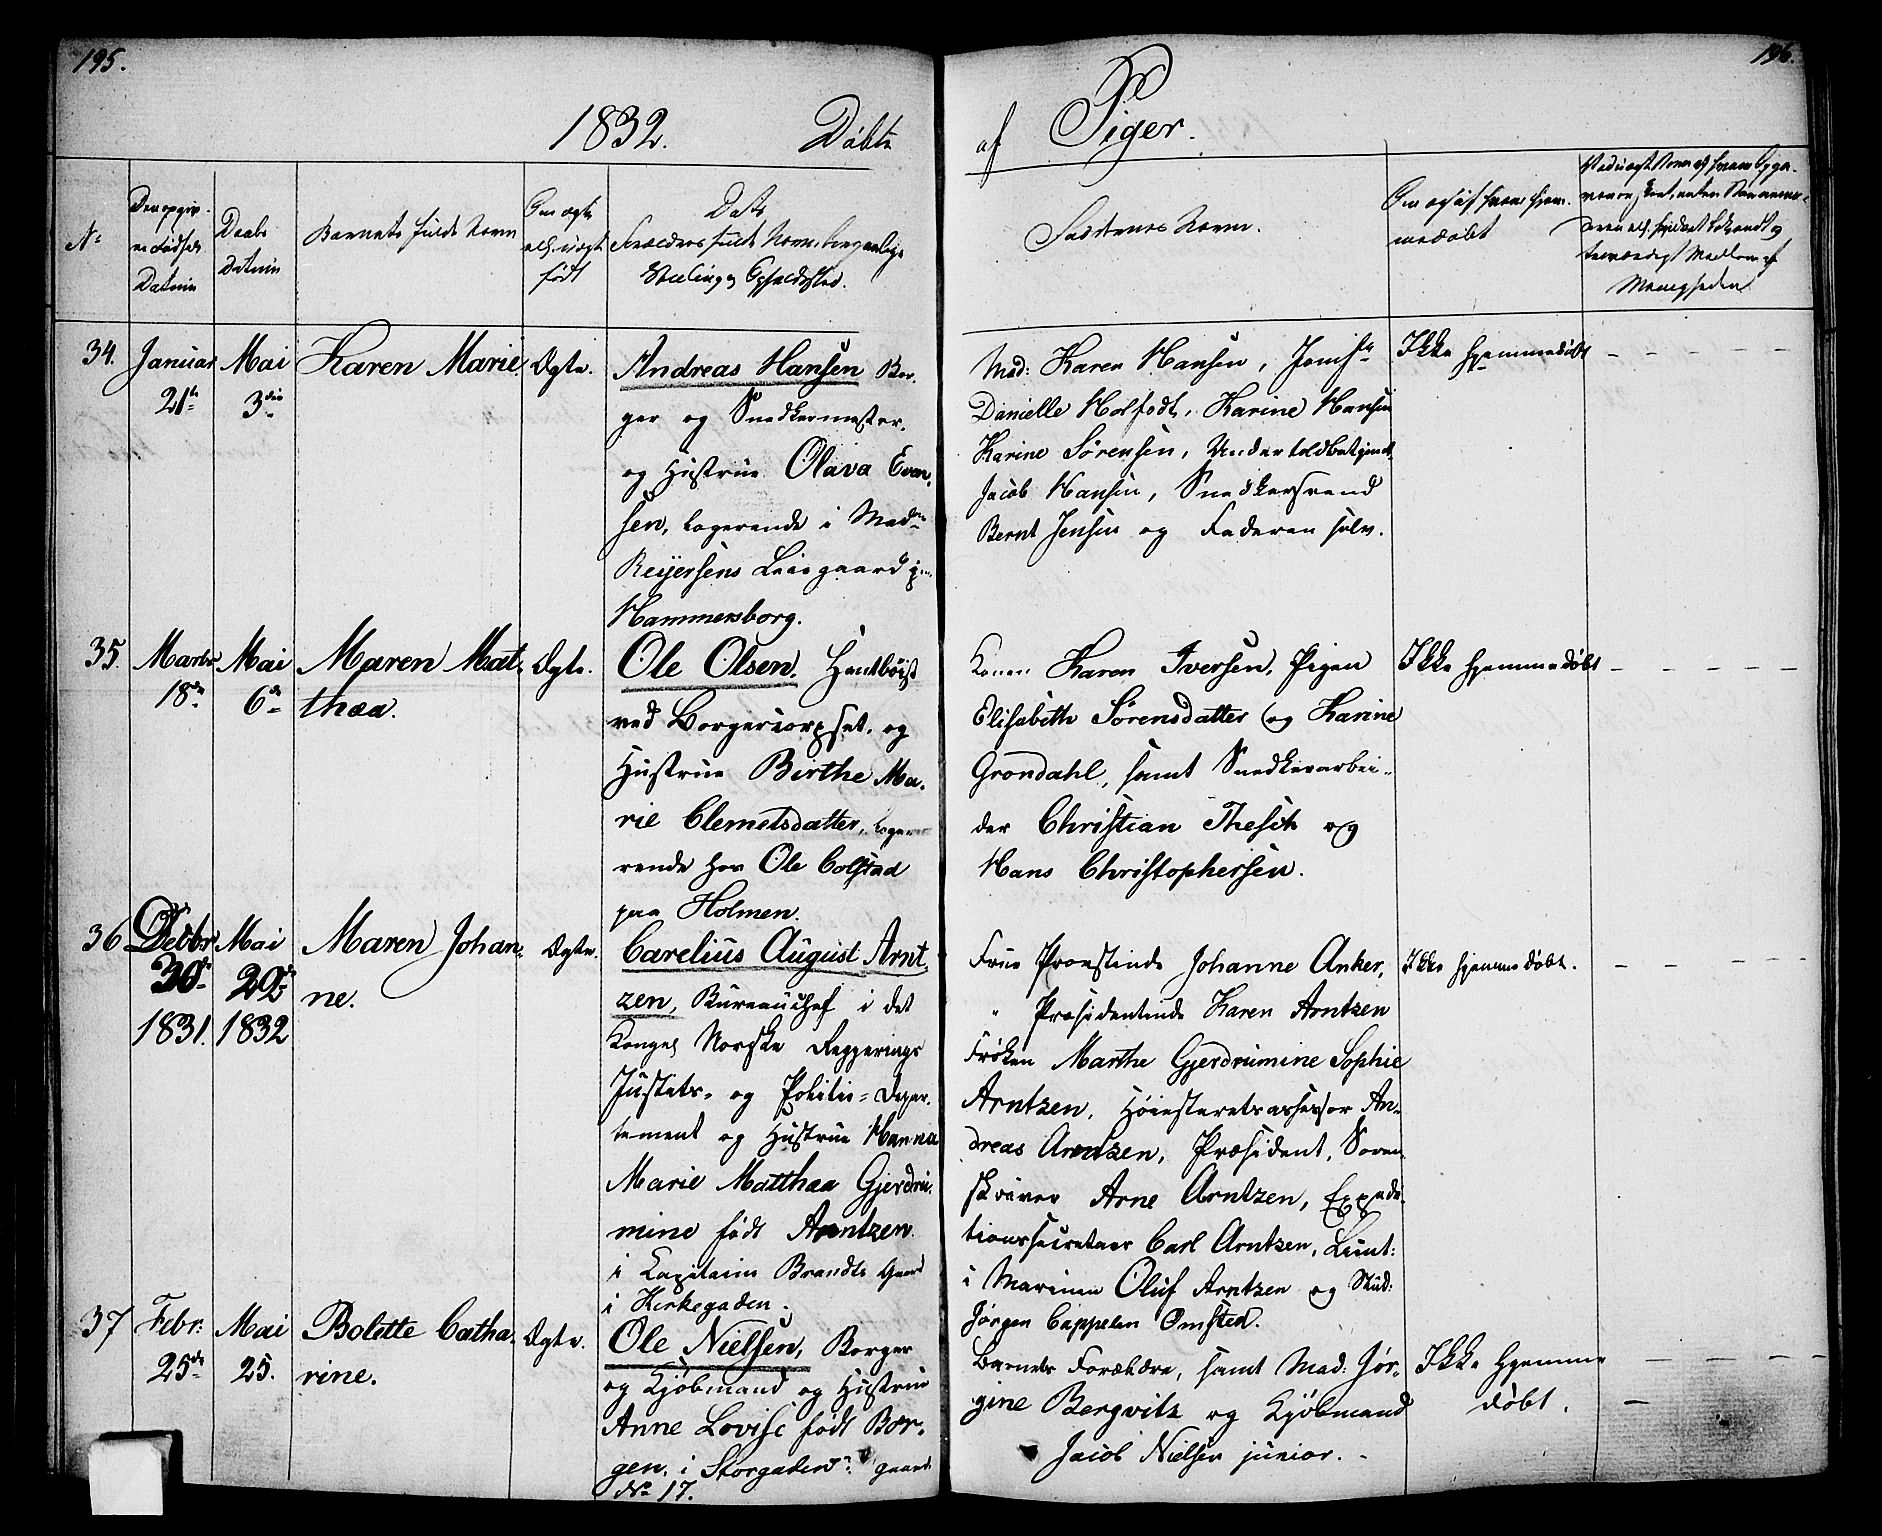 195.
196.
1832. Døbte
af Piger.
No
Den opgivne
Fødsels
Datum
Daabs
Datum
Barnets fulde Navn
Om ægte
ell. uægte
født
Dets
Forældres fulde Navn, borgerlige
Stilling og Opholdssted.
Faddernes Navn.
Om og af hvem hjem-
medøbt
Meenigheden
34.
Januar
21de
Mai
3die
Karen Marie
Ægte.
Andreas Hansen Bor-
ger og Snedkermester,
og Hustrue Olava Evan-
sen, logerende i Mad.
Reijersens Leiegaard p.
Hammersborg.
Mad: Karen Hansen, Jomfr.
Danielle Holfodt, Karine Hansen
Karine Sørensen, Undertoldbetjent
Jacob Hansen, Snedkersvend
Bernt Jensen og Faderen selv.
Ikke hjemmedøbt
35.
Marts
18de
Mai
6te
Maren Mat-
thea.
Ægte.
Ole Olsen, Hautboist
ved Borgercorpset, og
Hustrue Birthe Ma-
rie Clemetsdatter, loge-
rende hos Ole Colstad
paa Holmen.
Konen Karen Iversen, Pigen
Elisabeth Sørensdatter og Karine
Grøndahl, samt Snedkerarbei-
der Christian Thesen og
Hans Christophersen.
Ikke hjemmedøbt
36
Decbr
30te
1831.
Mai
29de
1832
Maren Johan-
ne.
Ægte.
Carelius August Arnt-
zen, Bureauchef i det
Kongel. Norske Regjerings
Justits- og Politie-Depar-
tement og Hustrue Hanna
Marie Matthea Gjerdru-
mine født Arntzen.
i Capitain Brandts Gaard
i Kirkegaden.
Frue Provstinde Johanne Anker,
" Præsidentinde Karen Arntzen
Frøken Marthe Gjerdrumine Sophie
Arntzen, Høiesteretsassessor An-
dreas Arntzen, Præsident, Soren-
skriver Arne Arntzen, Expedi-
tionssecretair Carl Arntzen, Lieut:
i Marinen Oluf Arntzen og Stud:
Jørgen Cappelen Omsted.
Ikke hjemmedøbt.
37
Febr:
25de
Mai
25.
Bolette Catha-
rine.
Ægte.
Ole Nielsen, Borger
og Kjøbmand og Hustrue
Anne Lovise født Bor-
gen, i Storgaden, Gaard
No 17.
Barnets Forældre, samt Mad: Jør-
gine Bergvitz og Kjøbmand
Jacob Nielsen junior.
Ikke hjemme
døbt.